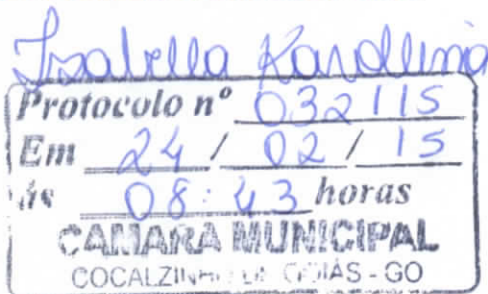 Isabella Karollina
Protocolo nº 032115
Em 24 / 02 / 15
ás 08:43 horas
CAMARA MUNICIPAL
COCALZINHO DE GOIÁS - GO